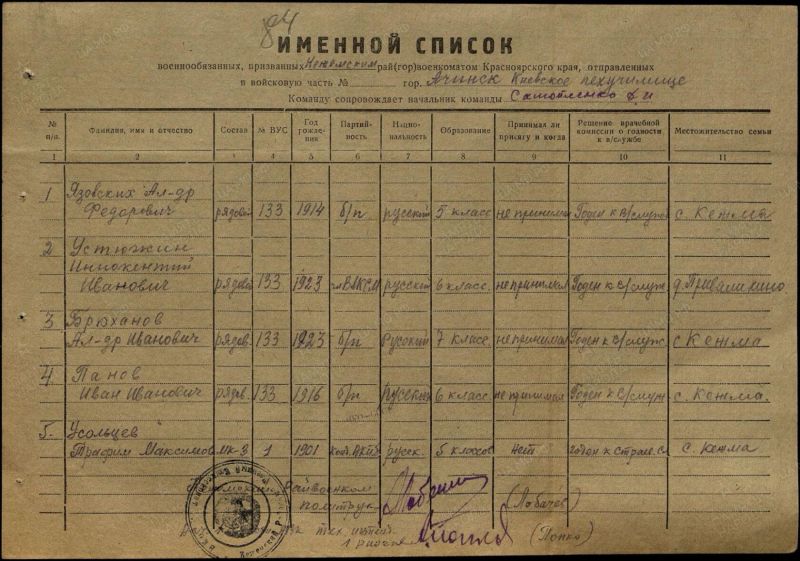 84
ИМЕННОЙ СПИСОК
военнообязанных, призванных Кежемским рай(гор)военкоматом Красноярского края, отправленных
в войсковую часть № гор. Ачинск Киевское пехучилище
Команду сопровождает начальник команды
№ п/п. Фамилия, имя и отчество Состав № ВУС Год рождения Партийность Национальность Образование Принимал ли присягу и когда Решение врачебной комиссии о годности к в/службе Местожительство семьи
1 2 3 4 5 6 7 8 9 10 11
1 Язовских Ал-др
Федорович рядовой 133 1914 б/п русский 5 класс. не принимал Годен к в/служ с. Кежма
2 Устюжин
Иннокентий
Иванович рядовой 133 1923 чл ВЛКСМ русский 6 класс. не принимал Годен к в/служ.
3 Брюханов
Ал-др Иванович рядов. 133 1923 б/п русский 7 класс. не принимал Годен к в/служ. с Кежма
4. Панов
Иван Иванович рядов. 133 1916 б/п русский 6 класс. не принимал Годен к в/служ с. Кежма.
5. Усольцев
Трофим Максимов мк-з 1 1901 русск. 5 классов нет годен к с. Кежма
Райвоенком
политрук (Лобачев)
(Попко)